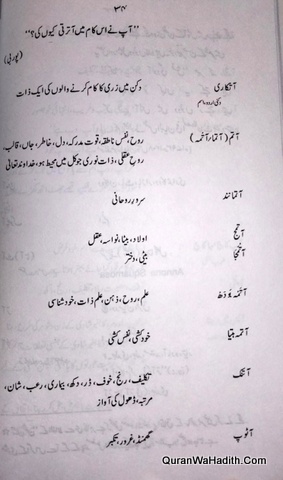 ۳۷
"آپ نے اس کام میں آترتی کیوں کی؟"
(پوربی)
آتکاری دکن میں زری کا کام کرنے والوں کی ایک ذات
دکنی اردو
آتم (آتما، آتمہ) روح، نفس ناطقہ، قوت مدرکہ، دل، خاطر، جاں، قالب،
روح عقلی، ذات نوری جو کل میں محیط ہو، خداوند تعالیٰ
آتمانند سرور روحانی
آتمج اولاد، بیٹا، نواسہ، عقل
آتمجا بیٹی، دختر
آتمہ علم، روح، ذہن، علم ذات، خود شناسی
آتمہ ہتیا خودکشی، نفس کشی
آتنک تکلیف، رنج، خوف، ڈر، دکھ، بیماری، رعب، شان،
مرتبہ، ڈھول کی آواز
آٹوپ گھمنڈ، غرور، تکبر
QuranWaHadith.Com